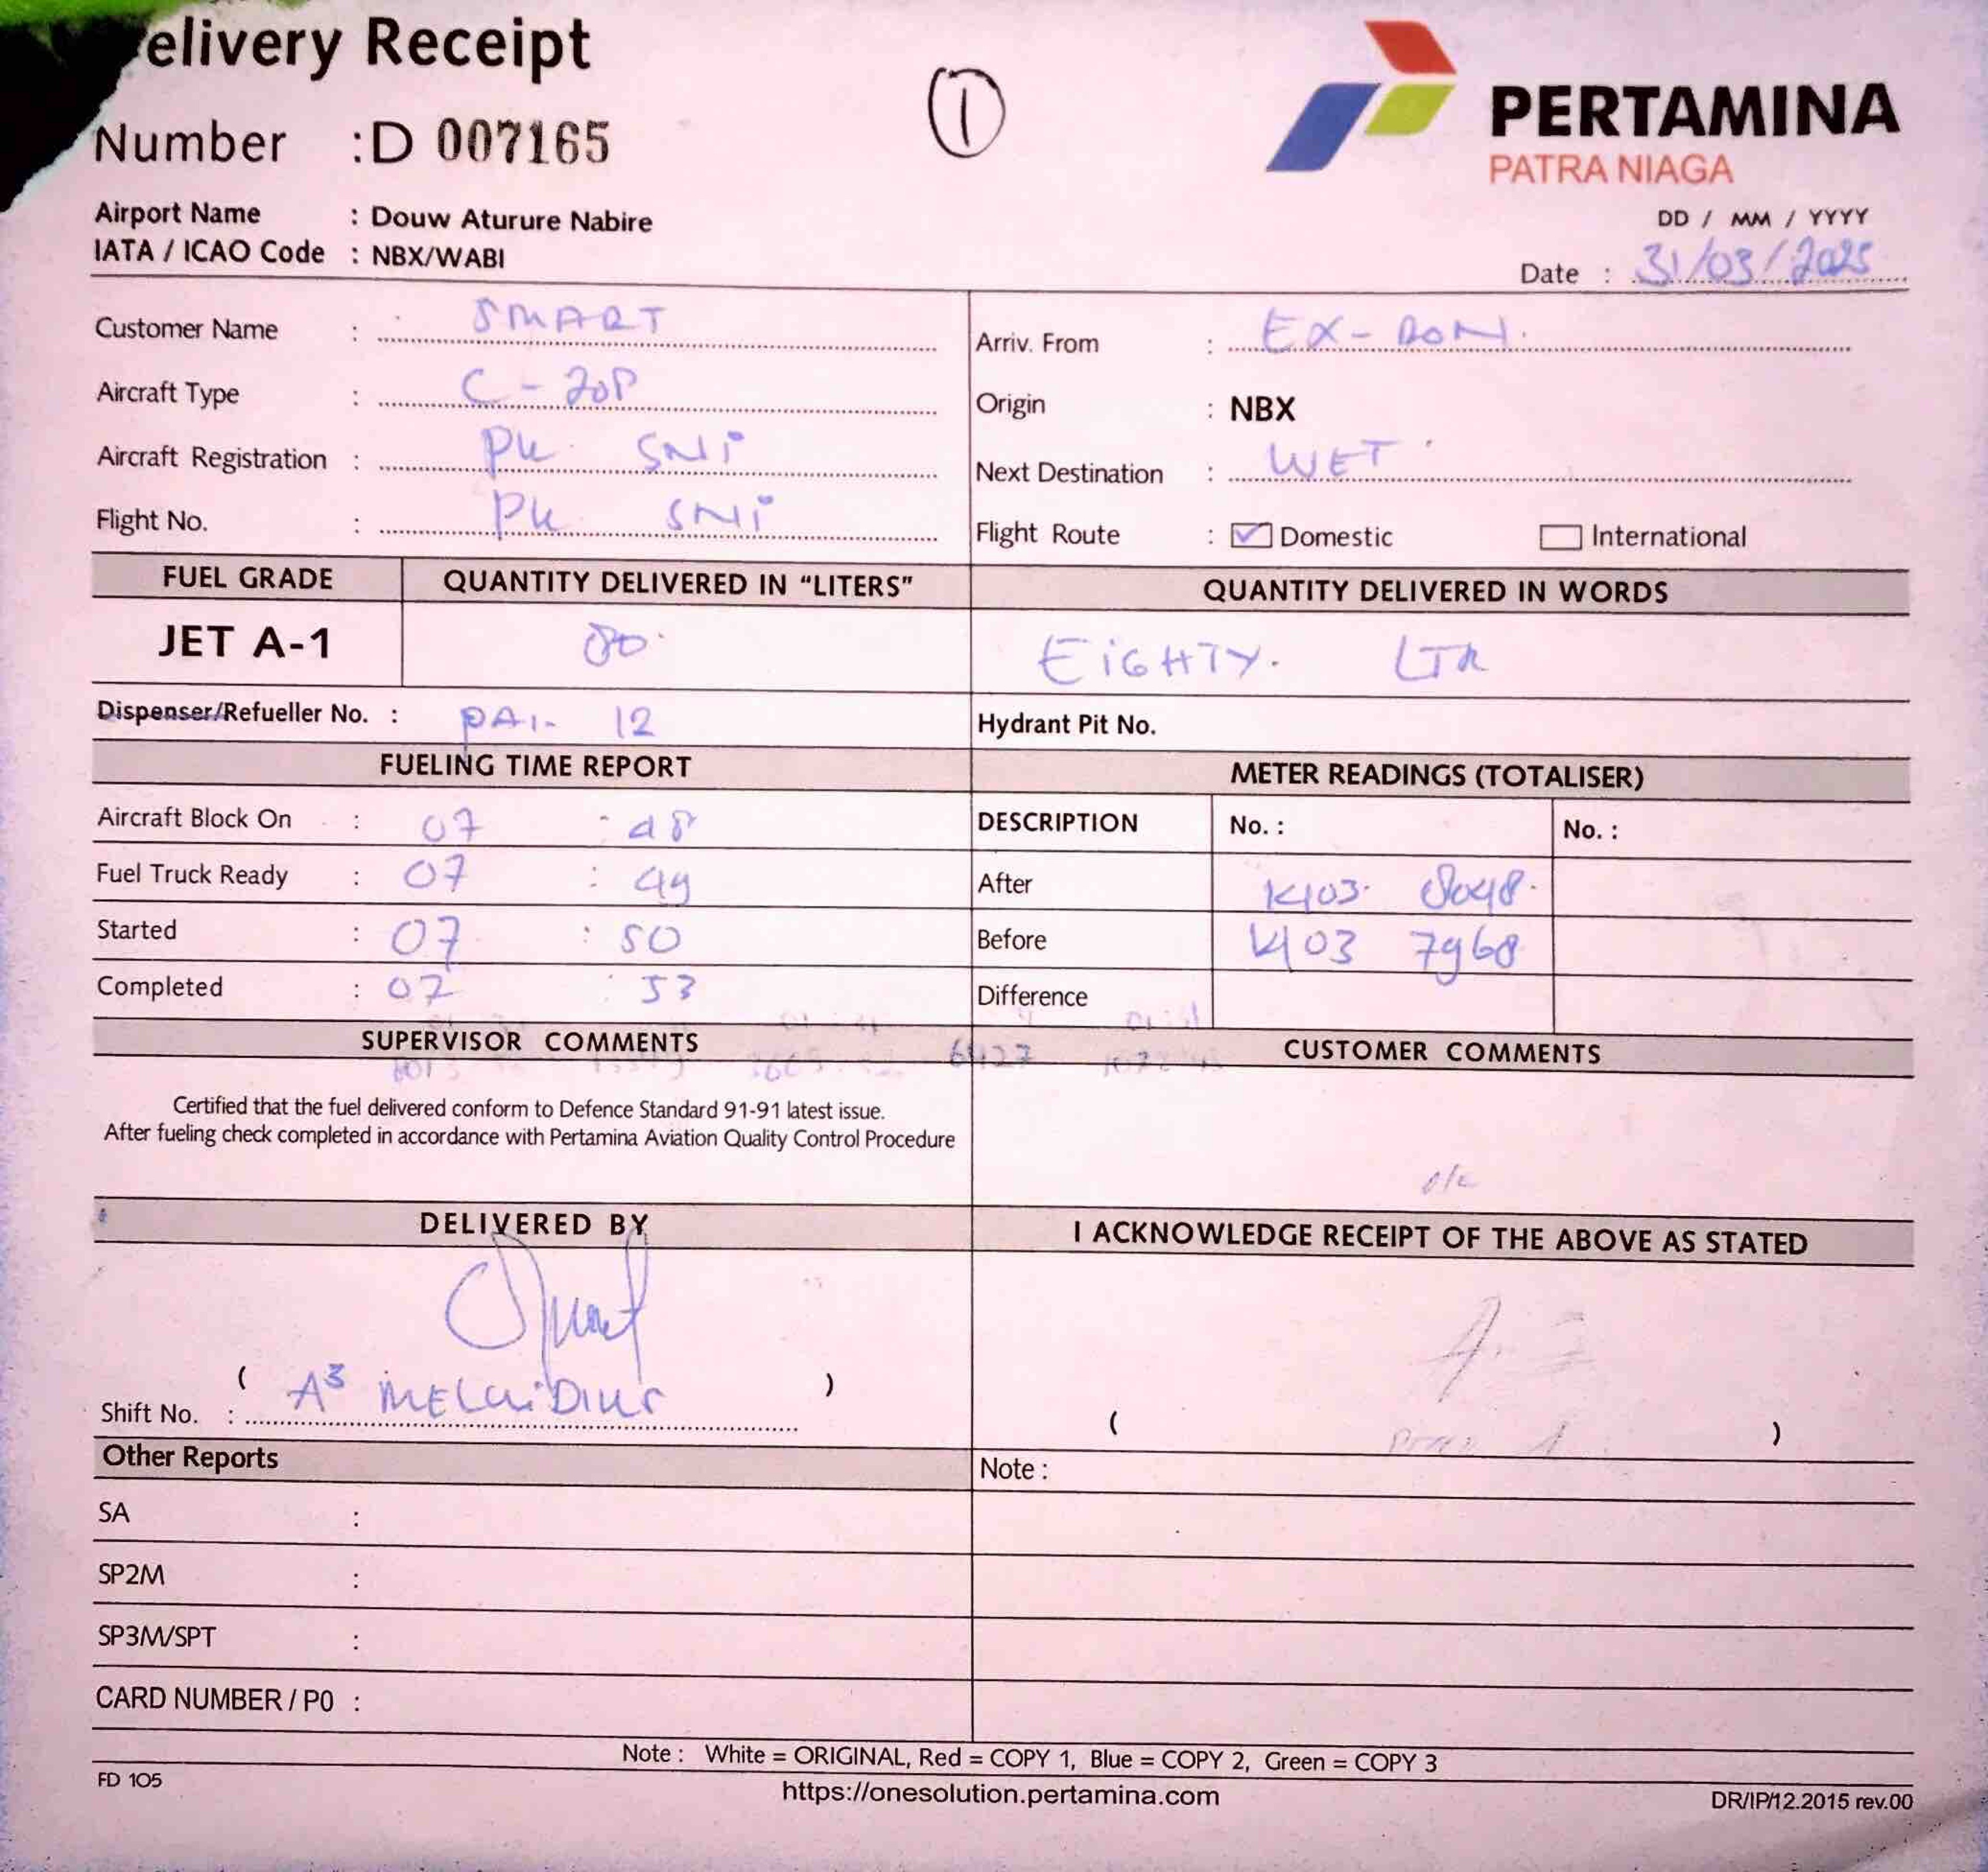 elivery Receipt
1
PERTAMINA
PATRA NIAGA
Number : D 007165
Airport Name : Douw Aturure Nabire
IATA / ICAO Code : NBX/WABI
DD / MM / YYYY
Date : 31/03/2025
Customer Name : SMART
Arriv. From : EX-DON.
Aircraft Type : C-208
Origin : NBX
Aircraft Registration : PK SNi
Next Destination : WET
Flight No. : PK SNi
Flight Route : Domestic International
FUEL GRADE QUANTITY DELIVERED IN "LITERS" QUANTITY DELIVERED IN WORDS
JET A-1 80 EiGHTY. LTR
Dispenser/Refueller No. : PAI- 12 Hydrant Pit No.
FUELING TIME REPORT METER READINGS (TOTALISER)
Aircraft Block On : 07 : 48 DESCRIPTION No. : No. :
Fuel Truck Ready : 07 : 49 After 8048
Started : 07 : 50 Before 7968
Completed : 07 : 53 Difference
SUPERVISOR COMMENTS CUSTOMER COMMENTS
6427
Certified that the fuel delivered conform to Defence Standard 91-91 latest issue.
After fueling check completed in accordance with Pertamina Aviation Quality Control Procedure
DELIVERED BY I ACKNOWLEDGE RECEIPT OF THE ABOVE AS STATED
( )
Shift No. : A3
( )
Other Reports Note :
SA :
SP2M :
SP3M/SPT :
CARD NUMBER / P0 :
Note : White = ORIGINAL, Red = COPY 1, Blue = COPY 2, Green = COPY 3
FD 105 https://onesolution.pertamina.com DR/IP/12.2015 rev.00